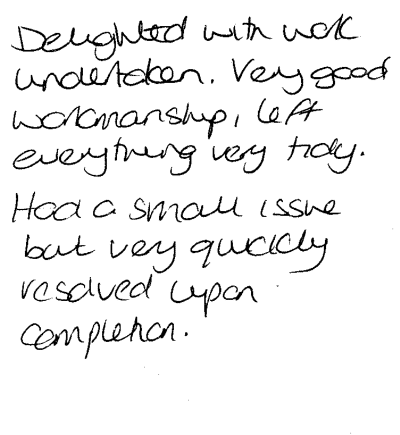 Delighted with work
undertaken. Very good
workmanship, left
everything very tidy.
Had a small issue
but very quickly
resolved upon
completion.